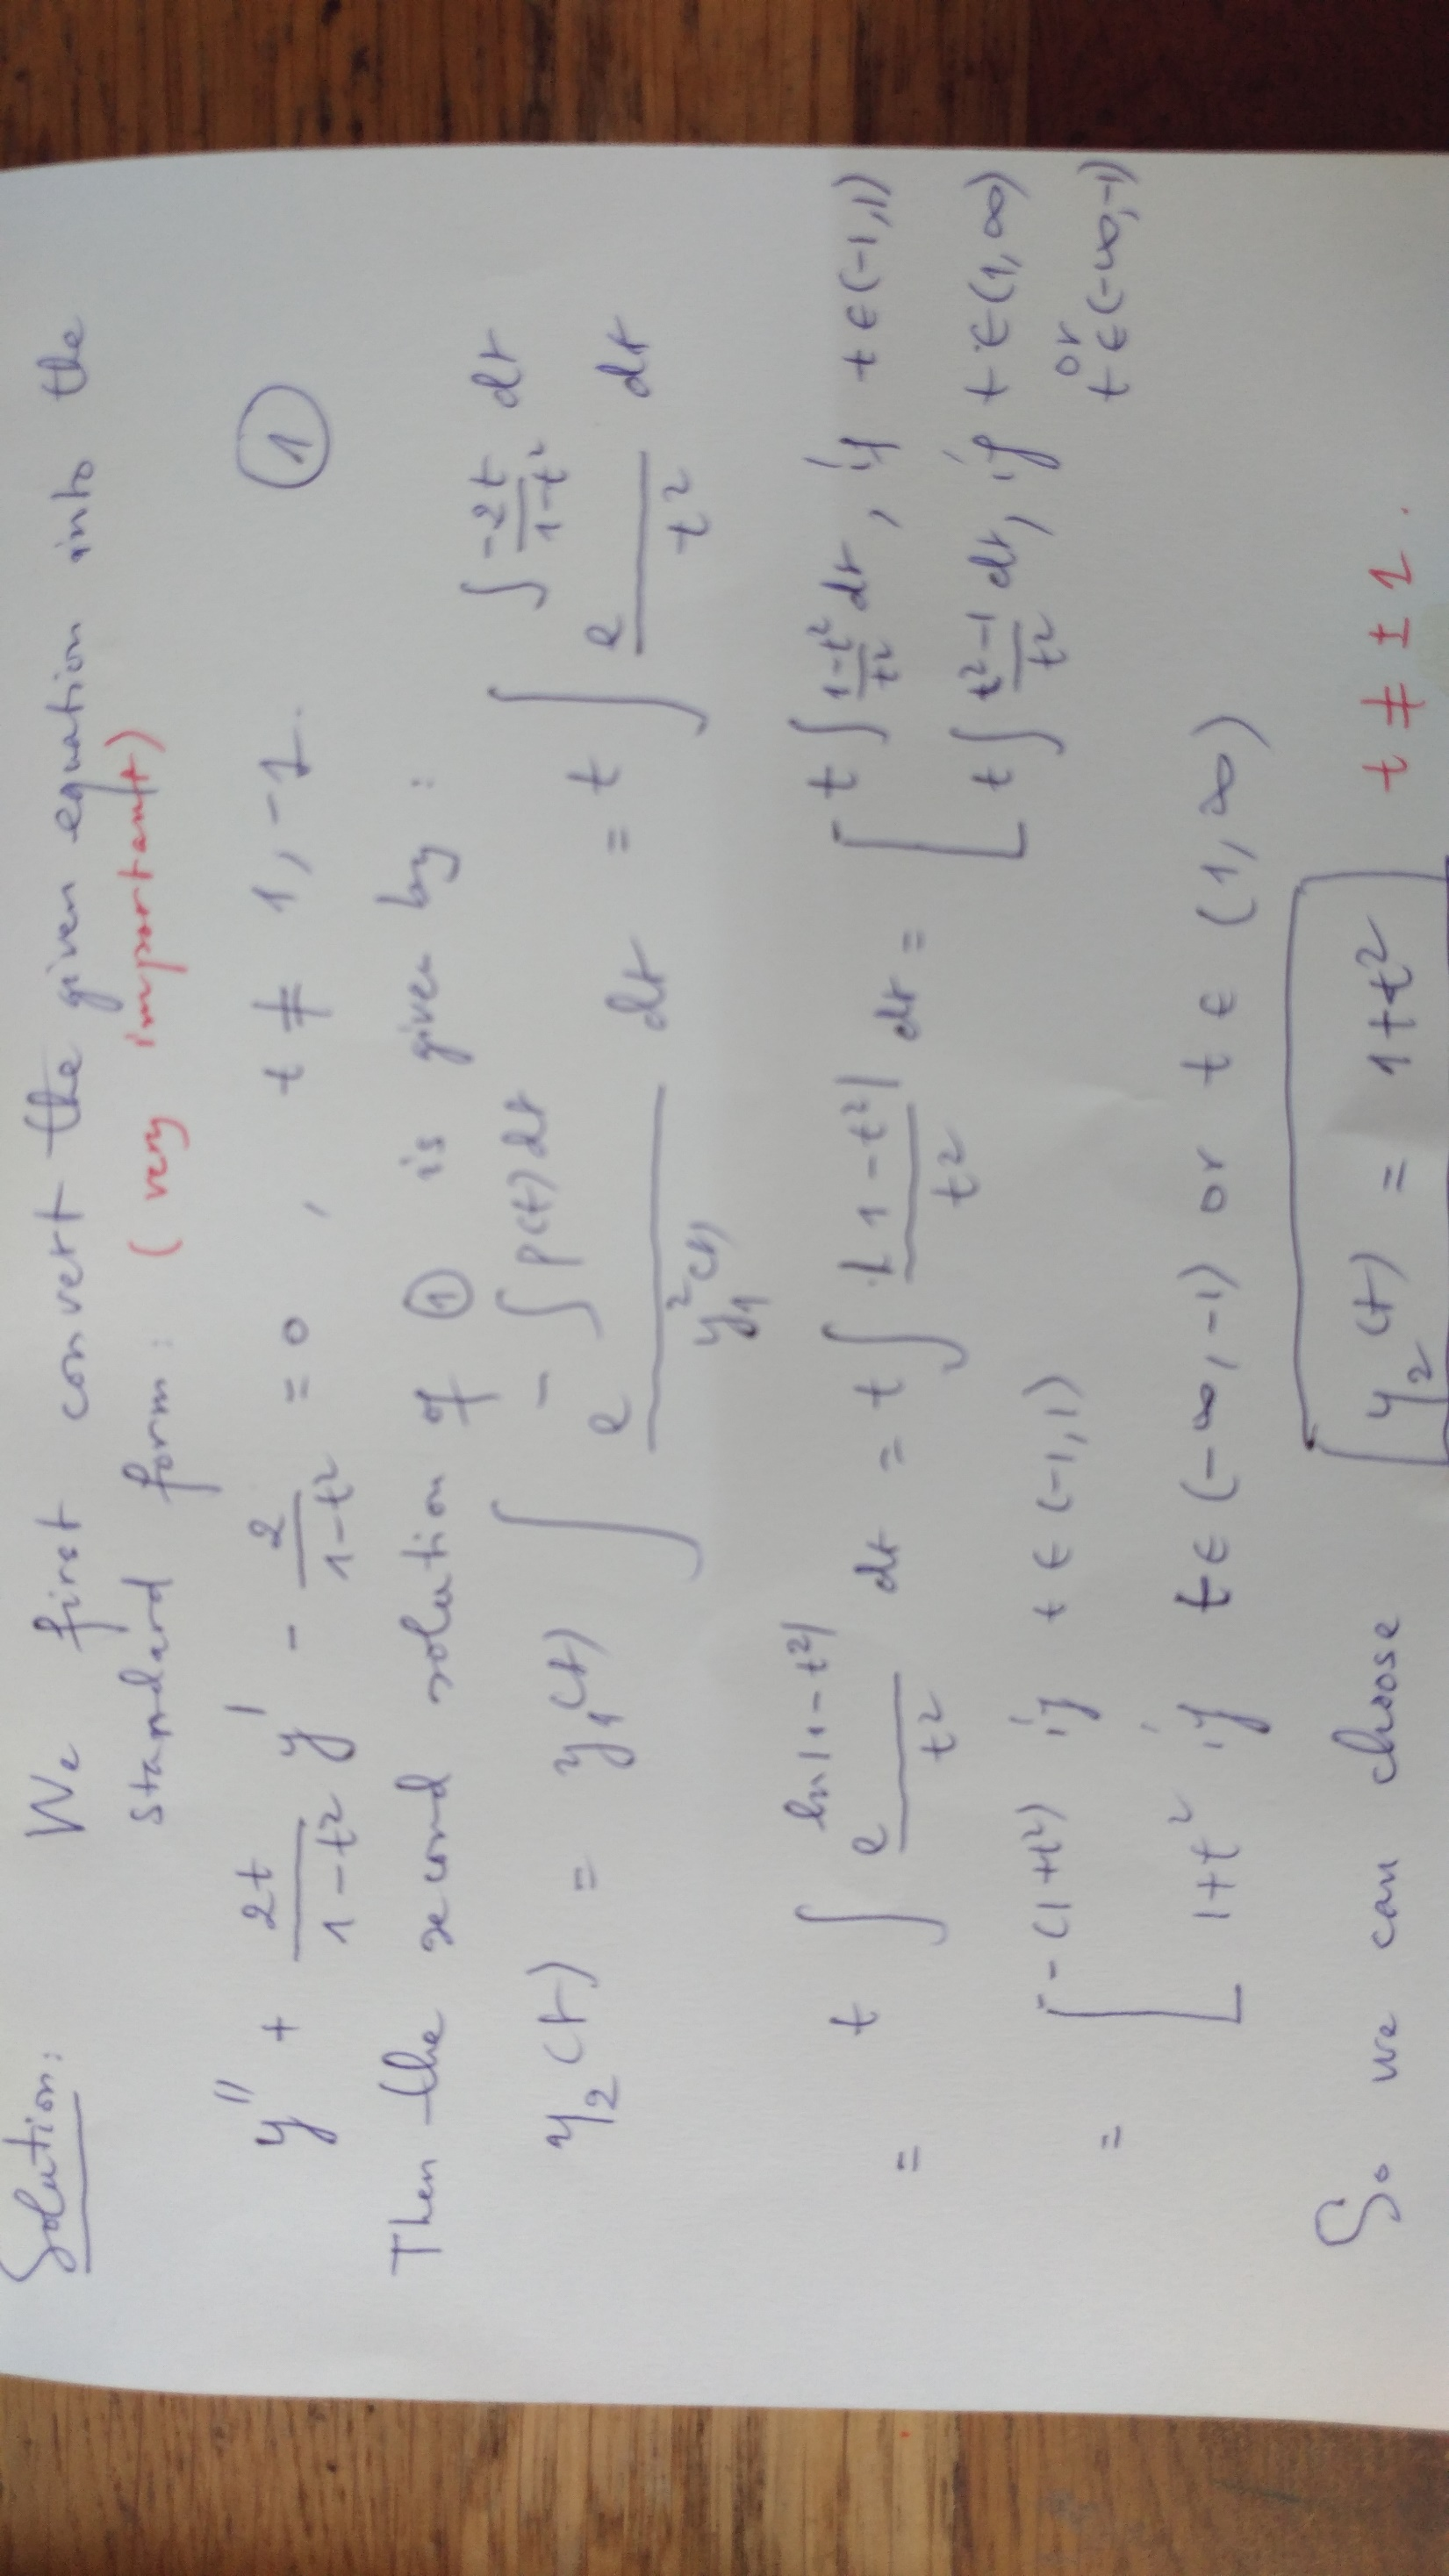 Solution: We first convert the given equation into the
standard form: (very important)
y'' + 2t/(1-t²) y' - 2/(1-t²) = 0, t ≠ 1, -1. ①
Then the second solution of ① is given by:
y₂(t) = y₁(t) ∫ e^(-∫p(t)dt) / y₁²(t) dt = t ∫ e^(∫ -2t/(1-t²) dt) / t² dt
= t ∫ e^(ln|1-t²|) / t² dt = t ∫ |1-t²| / t² dt = [ t ∫ (1-t²)/t² dt, if t ∈ (-1,1)
t ∫ (t²-1)/t² dt, if t ∈ (1,∞)
or
t ∈ (-∞,-1)
= [ -(1+t²) if t ∈ (-1,1)
1+t² if t ∈ (-∞,-1) or t ∈ (1,∞)
So we can choose y₂(t) = 1+t² t ≠ ±1.